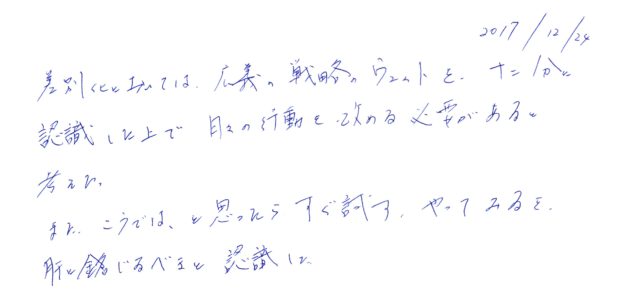 2017/12/24
差別化においては、広義の戦略のウェイトを、十二分に
認識した上で日々の行動を改める必要があると
考えた。
また、こうでは、と思ったらすぐ試す、やってみるを、
肝に銘じるべきと認識した